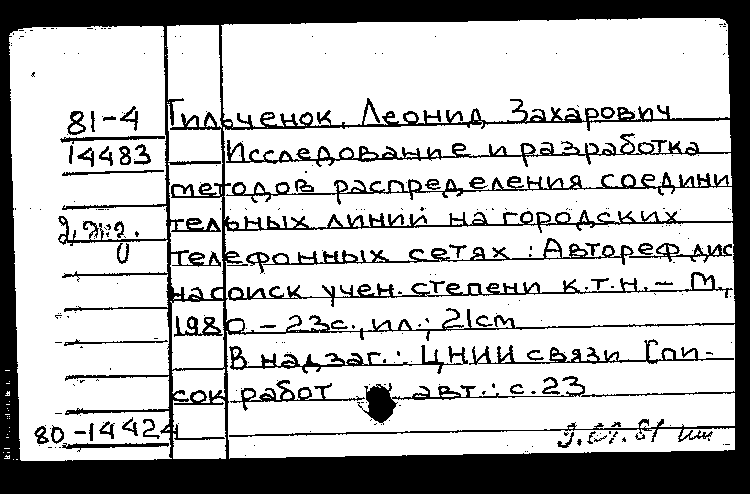 81-4 Гильченок, Леонид Захарович
14483 Исследование и разработка
методов распределения соедини
2 экз. тельных линий на городских
телефонных сетях : Автореф дис
на соиск учен. степени к.т.н. – М.,
1980. – 23с., ил.; 21см
В надзаг.: ЦНИИ связи Спи-
сок работ авт.: с. 23
80-14424